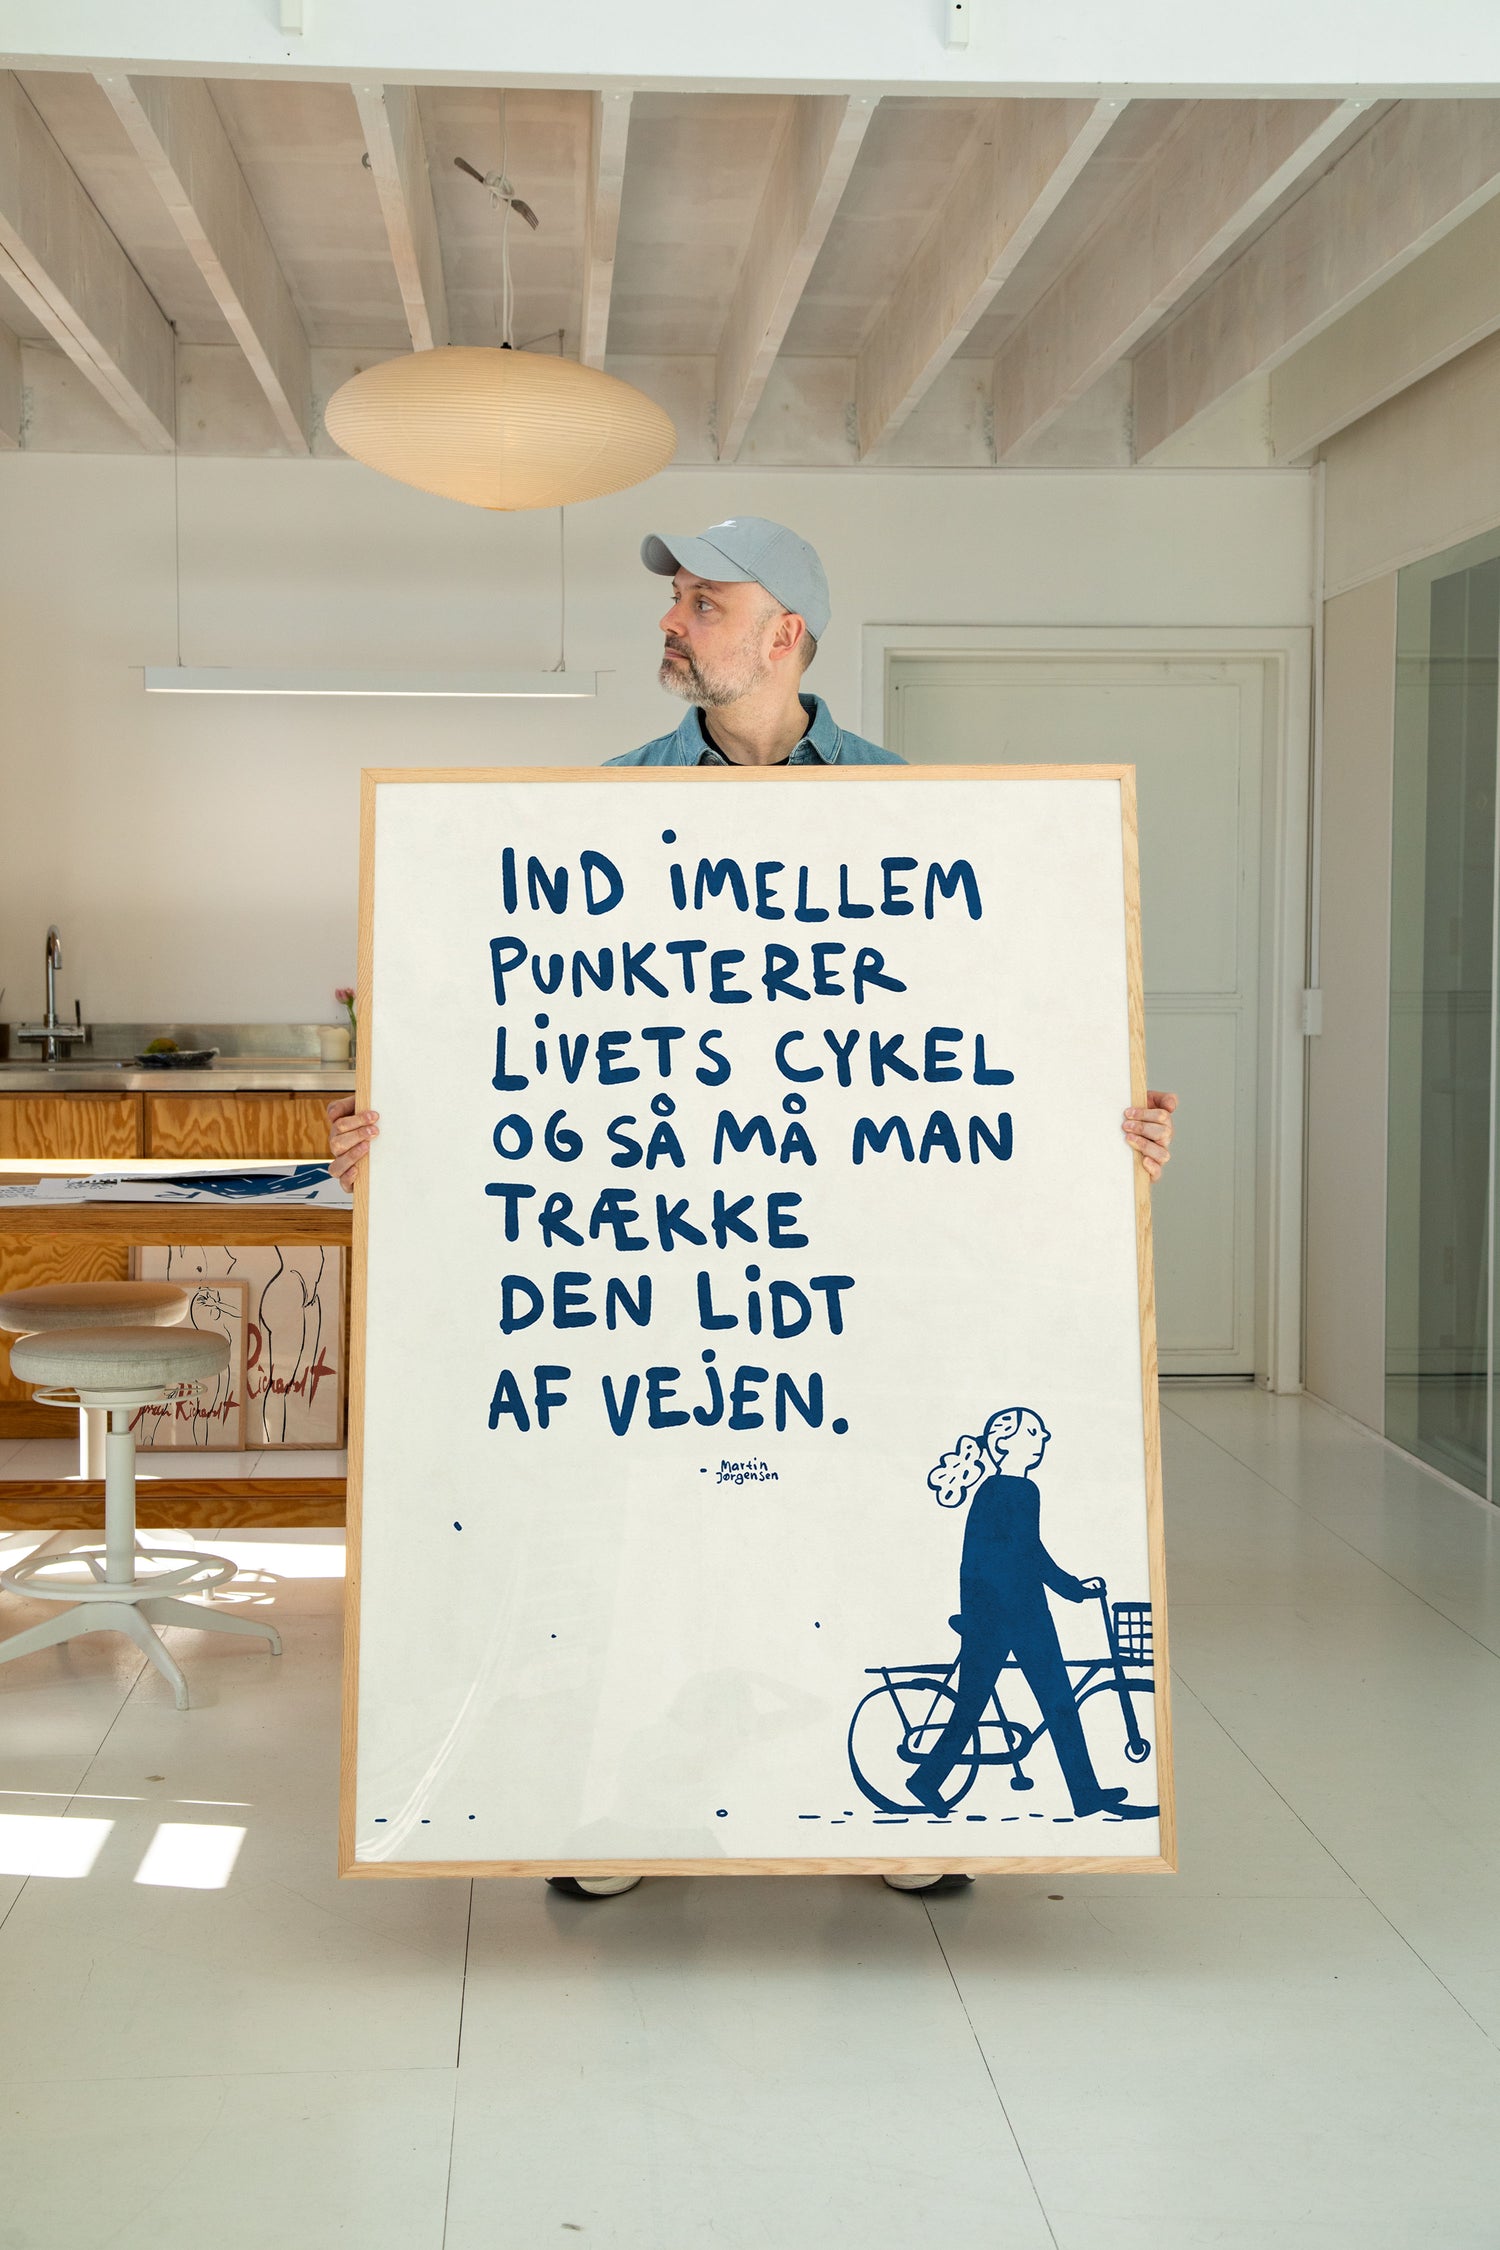 IND iMELLEM
PUNKTERER
LiVETS CYKEL
OG SÅ MÅ MAN
TRÆKKE
DEN LiDT
AF VEJEN.
- Martin
Jørgensen
Richardt
Richardt